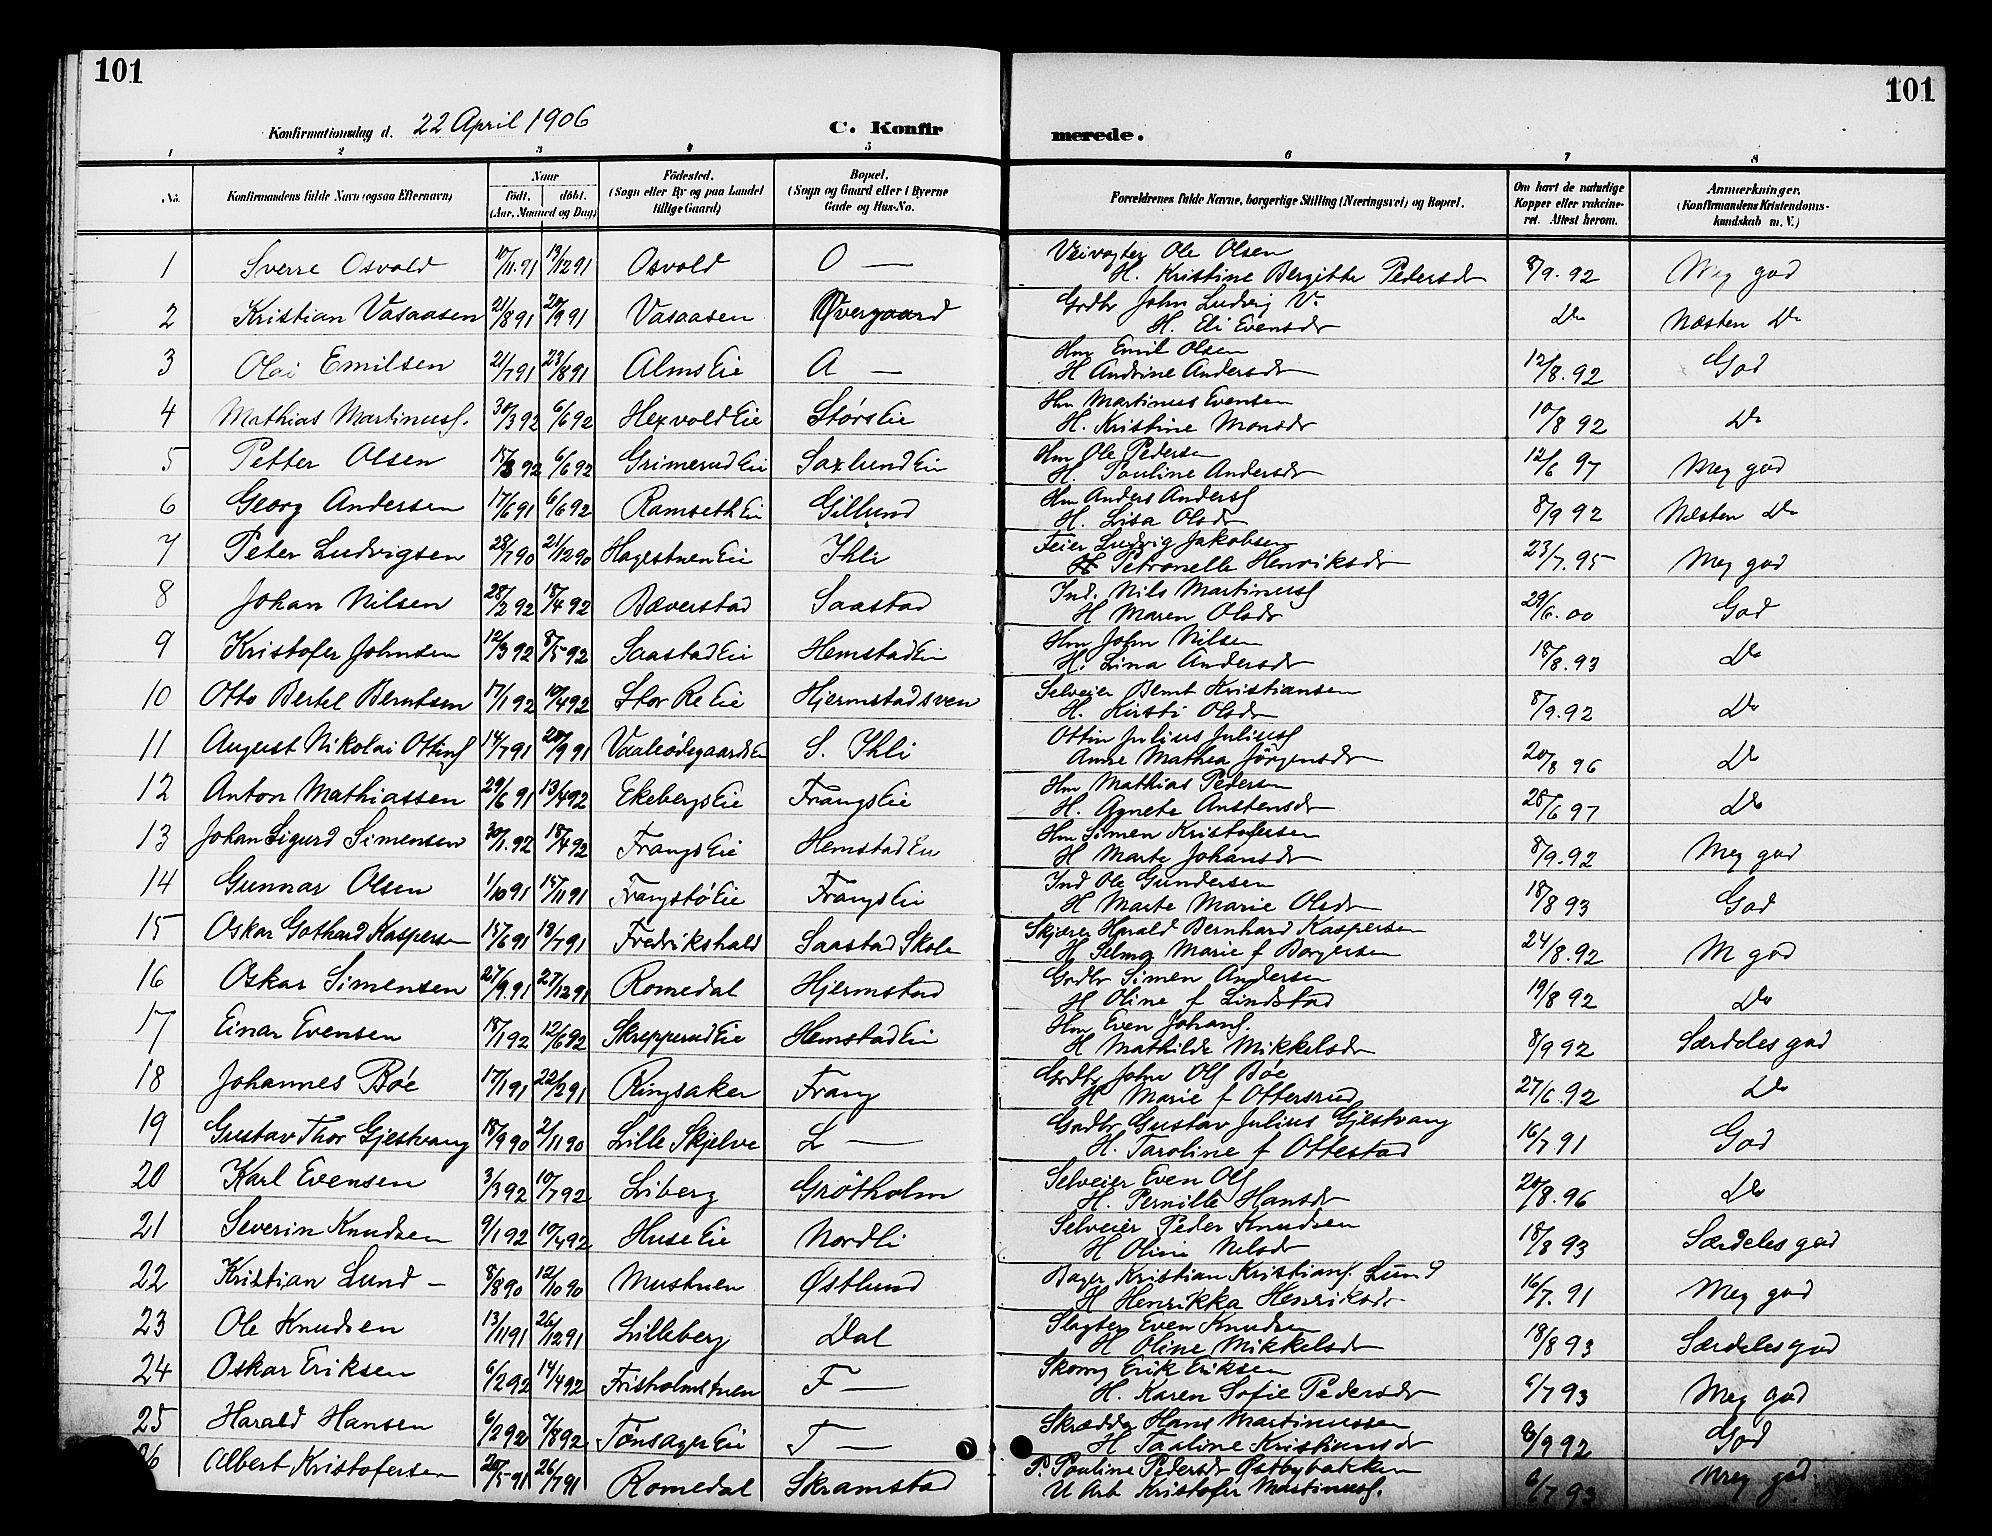 101
101
Konfirmationsdag d. 22 April 1906
C. Konfir
merede.
1 2 3 4 5 6 7 8
No. Konfirmandens fulde Navn (ogsaa Efternavn) Naar født. døbt. (Aar, Maaned og Dag) Fødested. (Sogn eller By og paa Landet tillige Gaard) Bopæl. (Sogn og Gaard eller i Byerne Gade og Hus-No. Forældrenes fulde Navne, borgerlige Stilling (Næringsvei) og Bopæl. Om havt de naturlige Kopper eller vakcineret. Attest herom. Anmærkninger. (Konfirmandens Kristendomskundskab m. V.)
1 Sverre Osvold 10/11.91 19/12 91 Osvold O — Veivogter Ole Olsen
H. Kristine Bergitte Pedersdr 8/9.92 Meg god
2 Kristian Vasaasen 21/8 91 20/9 91 Vasaasen Øvergaard Grdbr John Ludvig V.
H. Eli Evensdr Do Næsten Do
3 Olai Emilsen 21/7 91 23/8 91 Alms Eie A — Hm Emil Olsen
H Andrine Andersdr 12/8.92 God
4 Mathias Martinuss. 30/3 92 6/6 92 Hexvold Eie Størs Eie Hm Martinus Evensen
H. Kristine Monsdr 10/8 92 Do
5 Petter Olsen 15/3 92 6/6 92 Grimerud Eie Saxlund Eie Hm Ole Pedersen
H. Pauline Andersdr 12/6 97 Meg god
6 Georg Andersen 17/6 91 6/6 92 Ramseth Eie Gillund Hm Anders Anderss
H. Lisa Olsdr 8/9 92 Næsten Do
7 Peter Ludvigsen 28/7 90 21/12 90 Hagestuen Eie Ihli Feier Ludvig Jakobsen
H Petronelle Henriksdr 23/7.95 Meg god
8 Johan Nilsen 28/2 92 18/4 92 Bæverstad Saastad Ind. Nils Martinuss
H Maren Olsdr 29/6.00 God
9 Kristofer Johnsen 12/3 92 8/5 92 Saastad Eie Hemstad Eie Hm John Nilsen
H. Lina Andersdr 18/8.93 Do
10 Otto Bertel Berntsen 17/1 92 10/4 92 Stor Re Eie Hjermstadsven Selveier Bernt Kristiansen
H. Kirsti Olsdr 8/9.92 Do
11 August Nikolai Ottins 14/7 91 20/9 91 Vaaleødegaards Ei S. Ihli Ottin Julius Juliuss
Anne Mathea Jörgensdr 20/8 96 Do
12 Anton Mathiassen 29/6 91 13/4 92 Ekebergs Eie Frangs Eie Hm Mathias Pedersen
H. Agnete Anstensdr 28/6 97 Do
13 Johan Sigurd Simensen 30/1.92 18/4 92 Frangs Eie Hemstad Eie Hm Simen Kristofersen
H Marte Johansdr 8/9.92 Meg god
14 Gunnar Olsen 1/10 91 15/11 91 Frangstø Eie Frangs Eie Ind Ole Gundersen
H Marte Marie Olsdr 18/8 93 God
15 Oskar Gothard Kaspersen 15/6 91 18/7 91 Fredrikshald Saastad Skole Skjærer Harald Bernhard Kaspersen
H Selma Marie f Borgersen 24/8.92 M god
16 Oskar Simensen 27/9.91 27/12 91 Romedal Hjermstad Grdbr Simen Andersen
H Oline f Lindstad 19/8 92 Do
17 Einar Evensen 18/1 92 12/6 92 Skrepperud Eie Hemstad Eie Hm Even Johans.
H Mathilde Mikkelsdr 8/9 92 Særdeles god
18 Johannes Bøe 17/1 91 22/2 91 Ringsaker Frang Grdbr John Ols Bøe
H Marie f Ottersrud 27/6.92 Do
19 Gustav Thor Gjestvang 18/9 90 2/11 90 Lille Skjelve L — Grdbr Gustav Julius Gjestvang
H. Taroline f Ottestad 16/7 91 God
20 Karl Evensen 3/3 92 10/7 92 Liberg Grötholm Selveier Even Ols
H. Pernille Hansdr 20/8.96 Do
21 Severin Knudsen 9/1 92 10/4 92 Huse Eie Nordli Selveier Peder Knudsen
H Oline Nilsdr 18/8 93 Særdeles god
22 Kristian Lund – 8/8 90 12/10 90 Mustuen Østlund Bager Kristian Kristians. Lund
H Henrikka Henriksdr 16/7.91 Meg god
23 Ole Knudsen 13/11 91 26/12 91 Lilleberg Dal Slagter Even Knudsen
H Oline Mikkelsdr 18/8 93 Særdeles god
24 Oskar Eriksen 6/2 92 14/4 92 Frisholmstuen F — Skomg Erik Eriksen
H. Karen Sofie Pedersdr 6/7 93 Meg god
25 Harald Hansen 6/2 92 7/8 92 Tønsager Eie T — Skrædder Hans Martinussen
H Tauline Kristiansdr 8/9 92 God
26 Albert Kristofersen 20/5 91 26/7 91 Romedal Skramstad P. Pauline Pedersdr Østbybakken
U Arb Kristofer Martinuss. 6/7 93 Meg god.